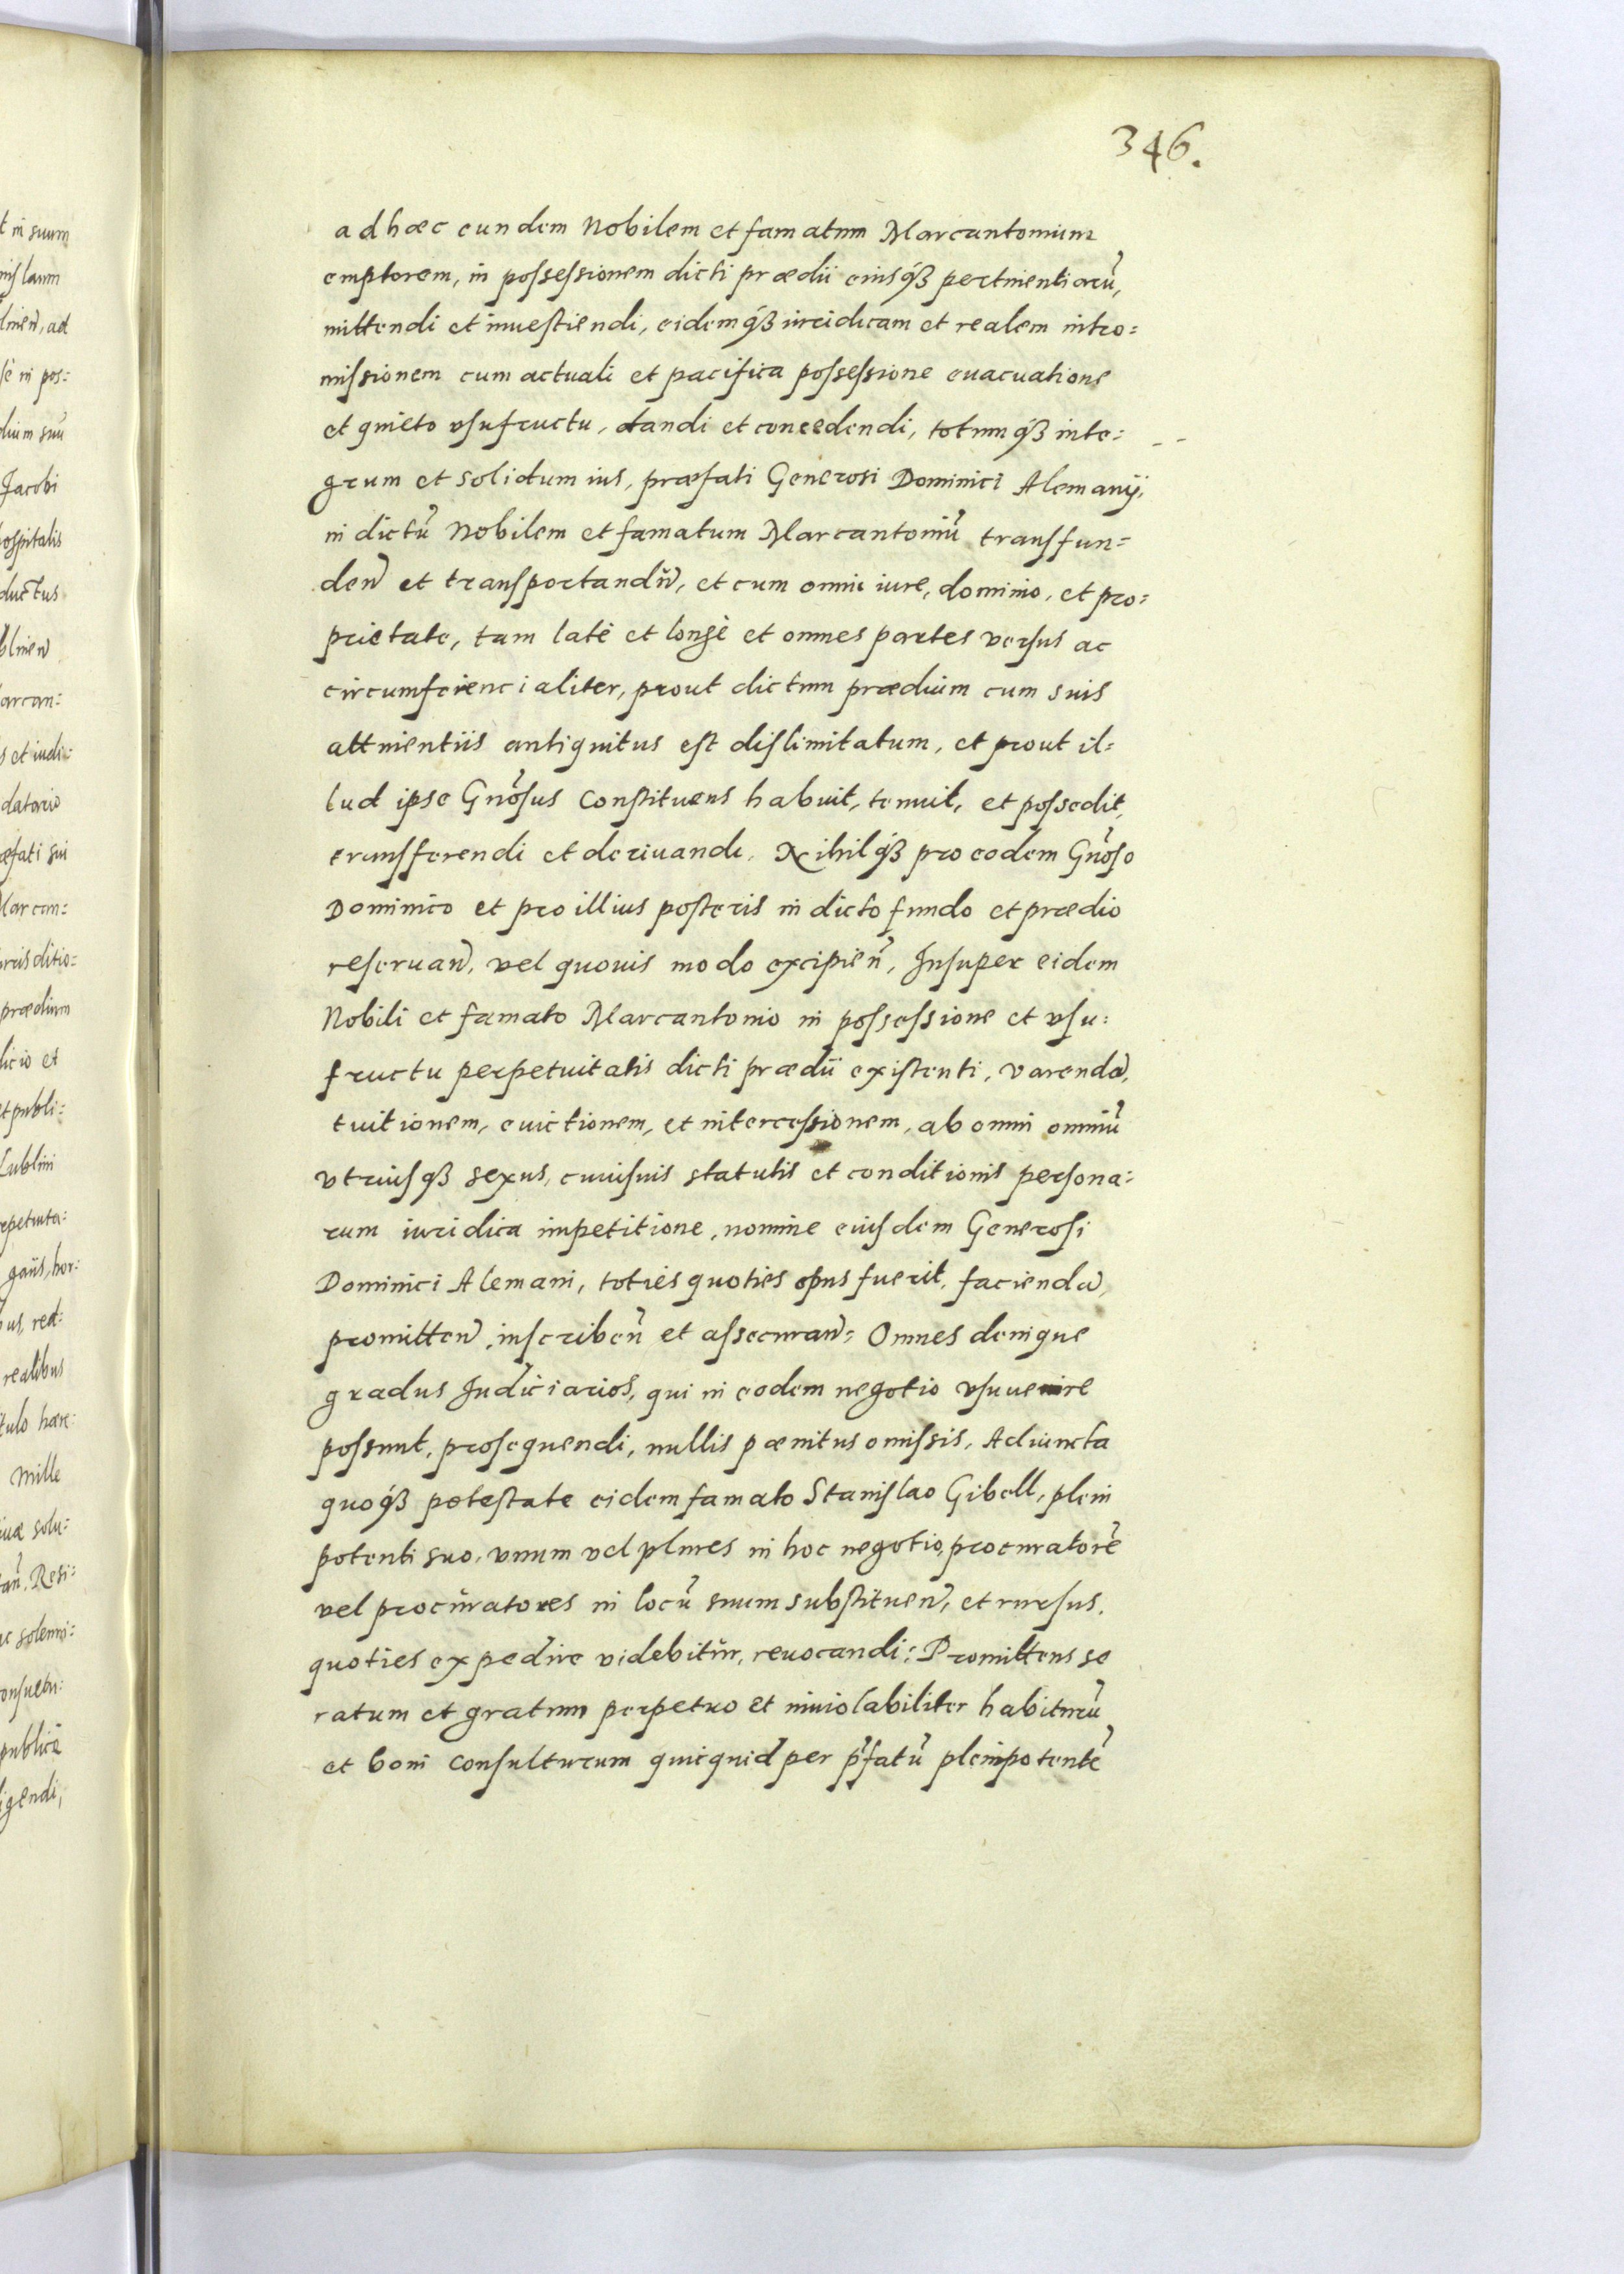 346.
ad hæc eundem Nobilem et famatum Marcantonium
emptorem, in possessionem dicti prædii eiusq́ꝫ pertinentiarũ,
mittendi et inuestiendi, eidemq́ꝫ iuridicam et realem intro=
missionem cum actuali et pacifica possessione euacuatione
et quieto vsufructu, dandi et concedendi, totumq́ꝫ inte=
grum et solidum ius, præfati Generosi Dominici Alemanij,
in dictũ Nobilem et famatum Marcantoniũ transfun=
deñ et transportandũ, et cum omni iure, dominio, et pro=
prietate, tam latè et longè et omnes partes versus ac
circumferencialiter, prout dictum prædium cum suis
attinentiis antiquitus est dislimitatum, et prout il=
lud ipse Gnõsus Constituens habuit, tenuit, et possedit,
transferendi et deriuandi. Nihilq́ꝫ pro eodem Gnõso
Dominico et pro illius posteris in dicto fundo et prædio
reseruañ, vel quouis modo excipieñ, Insuper eidem
Nobili et famato Marcantonio in possessione et vsu=
fructu perpetuitatis dicti prædii existenti, varendã,
tuitionem, euictionem, et intercessionem, ab omni omniũ
vtriusqꝫ sexus, cuiusuis statutis et conditionis persona=
rum iuridica impetitione, nomine eiusdem Generosi
Dominici Alemani, toties quoties opus fuerit, faciendã,
promitteñ, inscribeñ et assecurañ: Omnes denique
gradus Judiciarios, qui in eodem negotio vsuuenire
possunt, prosequendi, nullis pænitus omissis, Adiuncta
quoq́ꝫ potestate eidem famato Stanislao Gibell, pleni
potenti suo, vnum vel plures in hoc negotio, procuratorẽ
vel procuratores in locũ suum substitueñ, et rursus,
quoties expedire videbitur, reuocandi: Promittens se
ratum et gratum perpetuo et inuiolabiliter habiturũ
et boni consulturum quicquid per p̃fatũ plenipotentẽ